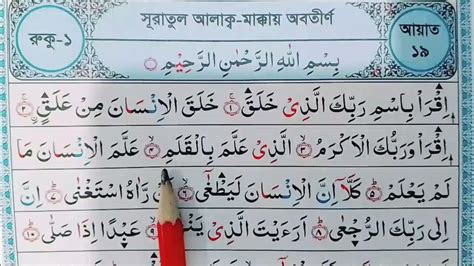 রুকু-১
সূরাতুল আলাক্ব-মাক্কায় অবতীর্ণ
আয়াত ১৯
بِسْمِ اللهِ الرَّحْمٰنِ الرَّحِيْمِ
اِقْرَاْ بِاسْمِ رَبِّكَ الَّذِىْ خَلَقَ ۝١ خَلَقَ الْاِنْسَانَ مِنْ عَلَقٍ ۝٢
اِقْرَاْ وَرَبُّكَ الْاَكْرَمُ ۝٣ الَّذِىْ عَلَّمَ بِالْقَلَمِ ۝٤ عَلَّمَ الْاِنْسَانَ مَا
لَمْ يَعْلَمْ ۝٥ كَلَّاۤ اِنَّ الْاِنْسَانَ لَيَطْغٰٓى ۝٦ رَّاٰهُ اسْتَغْنٰى ۝٧ اِنَّ
اِلٰى رَبِّكَ الرُّجْعٰى ۝٨ اَرَءَيْتَ الَّذِىْ ۝٩ عَبْدًا اِذَا صَلّٰى ۝١٠